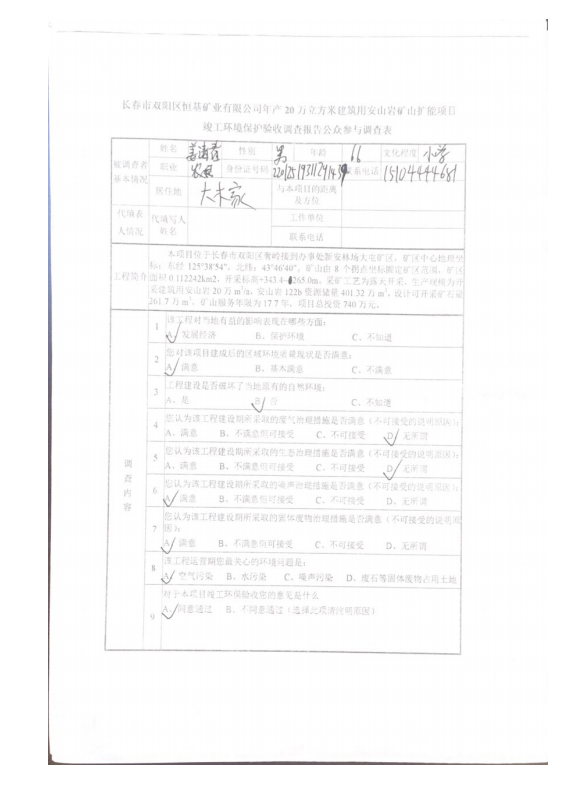 长春市双阳区恒基矿业有限公司年产 20 万立方米建筑用安山岩矿山扩能项目
竣工环境保护验收调查报告公众参与调查表
被调查者
基本情况
姓名 性别 男 年龄 66 文化程度 小学
职业 农民 身份证号码 联系电话 15104444681
居住地 与本项目的距离
及方位
代填表
人情况
代填写人
姓名
工作单位
联系电话
工程简介
本项目位于长春市双阳区奢岭接到办事处新安林场大屯矿区，矿区中心地理坐
标：东经 125°38′54″、北纬：43°46′40″，矿山由 8 个拐点坐标圈定矿区范围，矿区
面积 0.112242km2，开采标高+343.4-+265.0m。采矿工艺为露天开采，生产规模为开
采建筑用安山岩 20 万 m³/a，安山岩 122b 资源储量 401.32 万 m³，设计可开采矿石量
261.7 万 m³，矿山服务年限为 17.7 年。项目总投资 740 万元。
调查内容
1 该工程对当地有益的影响表现在哪些方面：
A、发展经济 B、保护环境 C、不知道
2 您对该项目建成后的区域环境质量现状是否满意：
A、满意 B、基本满意 C、不满意
3 工程建设是否破坏了当地原有的自然环境：
A、是 B、否 C、不知道
4 您认为该工程建设期所采取的废气治理措施是否满意（不可接受的说明原因）：
A、满意 B、不满意但可接受 C、不可接受 D、无所谓
5 您认为该工程建设期所采取的生态治理措施是否满意（不可接受的说明原因）：
A、满意 B、不满意但可接受 C、不可接受 D、无所谓
6 您认为该工程建设期所采取的噪声治理措施是否满意（不可接受的说明原因）：
A、满意 B、不满意但可接受 C、不可接受 D、无所谓
7 您认为该工程建设期所采取的固体废物治理措施是否满意（不可接受的说明原
因）：
A、满意 B、不满意但可接受 C、不可接受 D、无所谓
8 该工程运营期您最关心的环境问题是：
A、空气污染 B、水污染 C、噪声污染 D、废石等固体废物占用土地
9 对于本项目竣工环保验收您的意见是什么
A、同意通过 B、不同意通过（选择此项请注明原因）